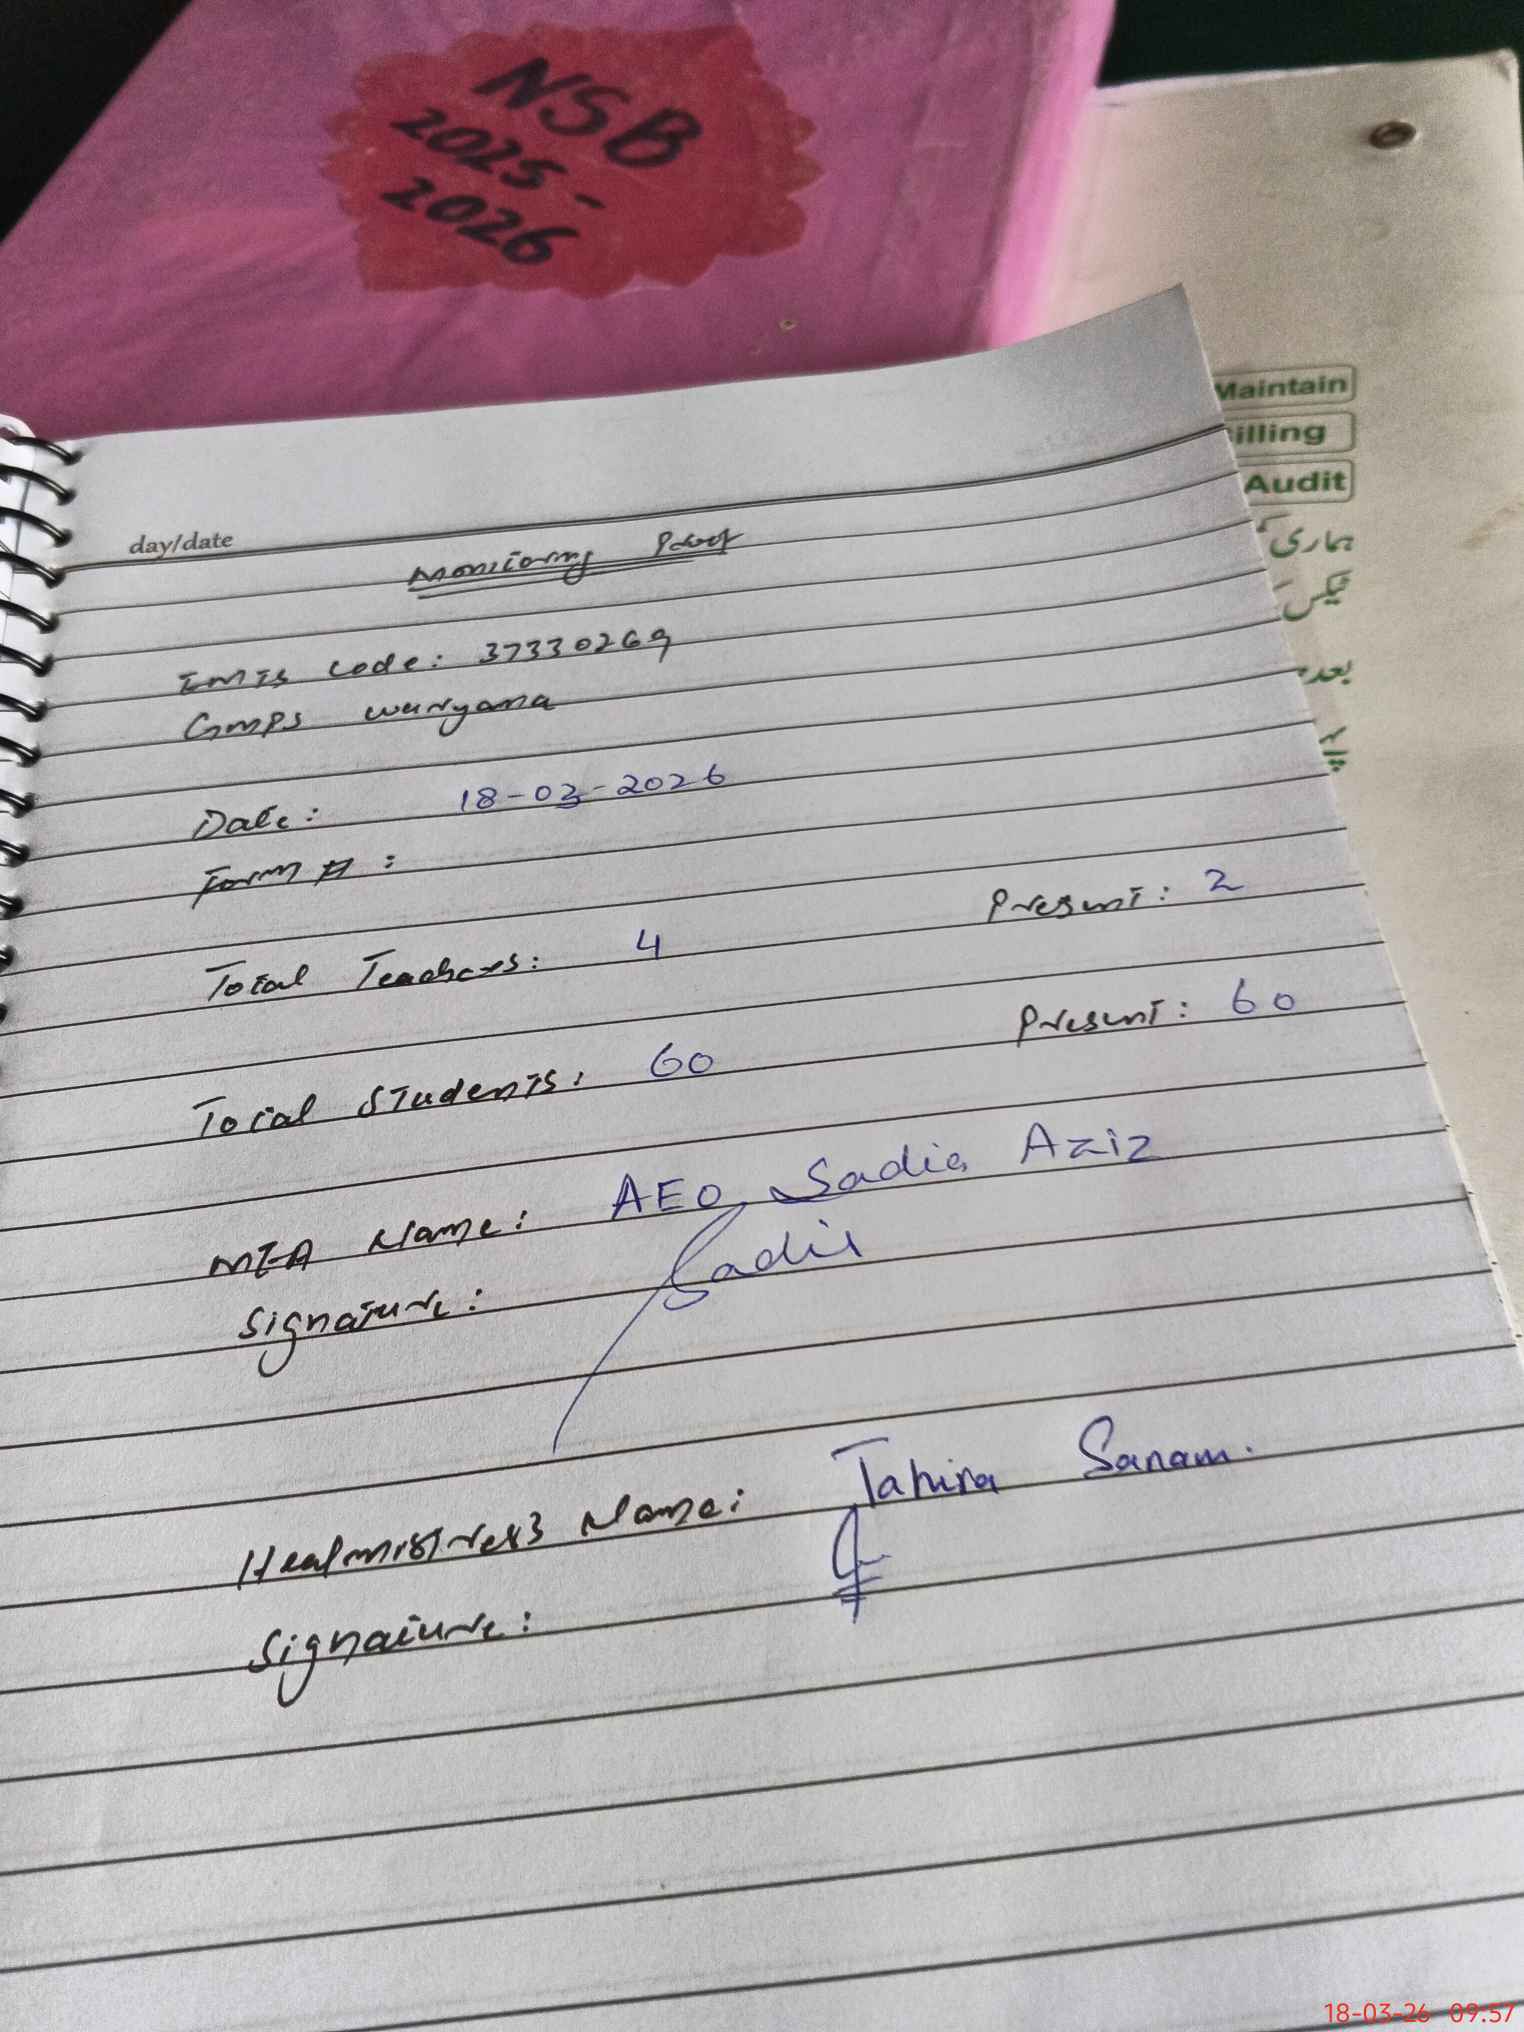 NSB
2025-
2026
Maintain
illing
Audit
ہماری
ٹیکس
بعد
day/date
Monitoring Proof
EMIS Code: 37330269
GMPS Waryana
Date: 18-03-2026
Form # :
Total Teachers: 4 Present: 2
Total Students: 60 Present: 60
MEA Name: AEO Sadia Aziz
Signature: Sadia
Headmistress Name: Tahira Sanam.
Signature:
18-03-26 09:57